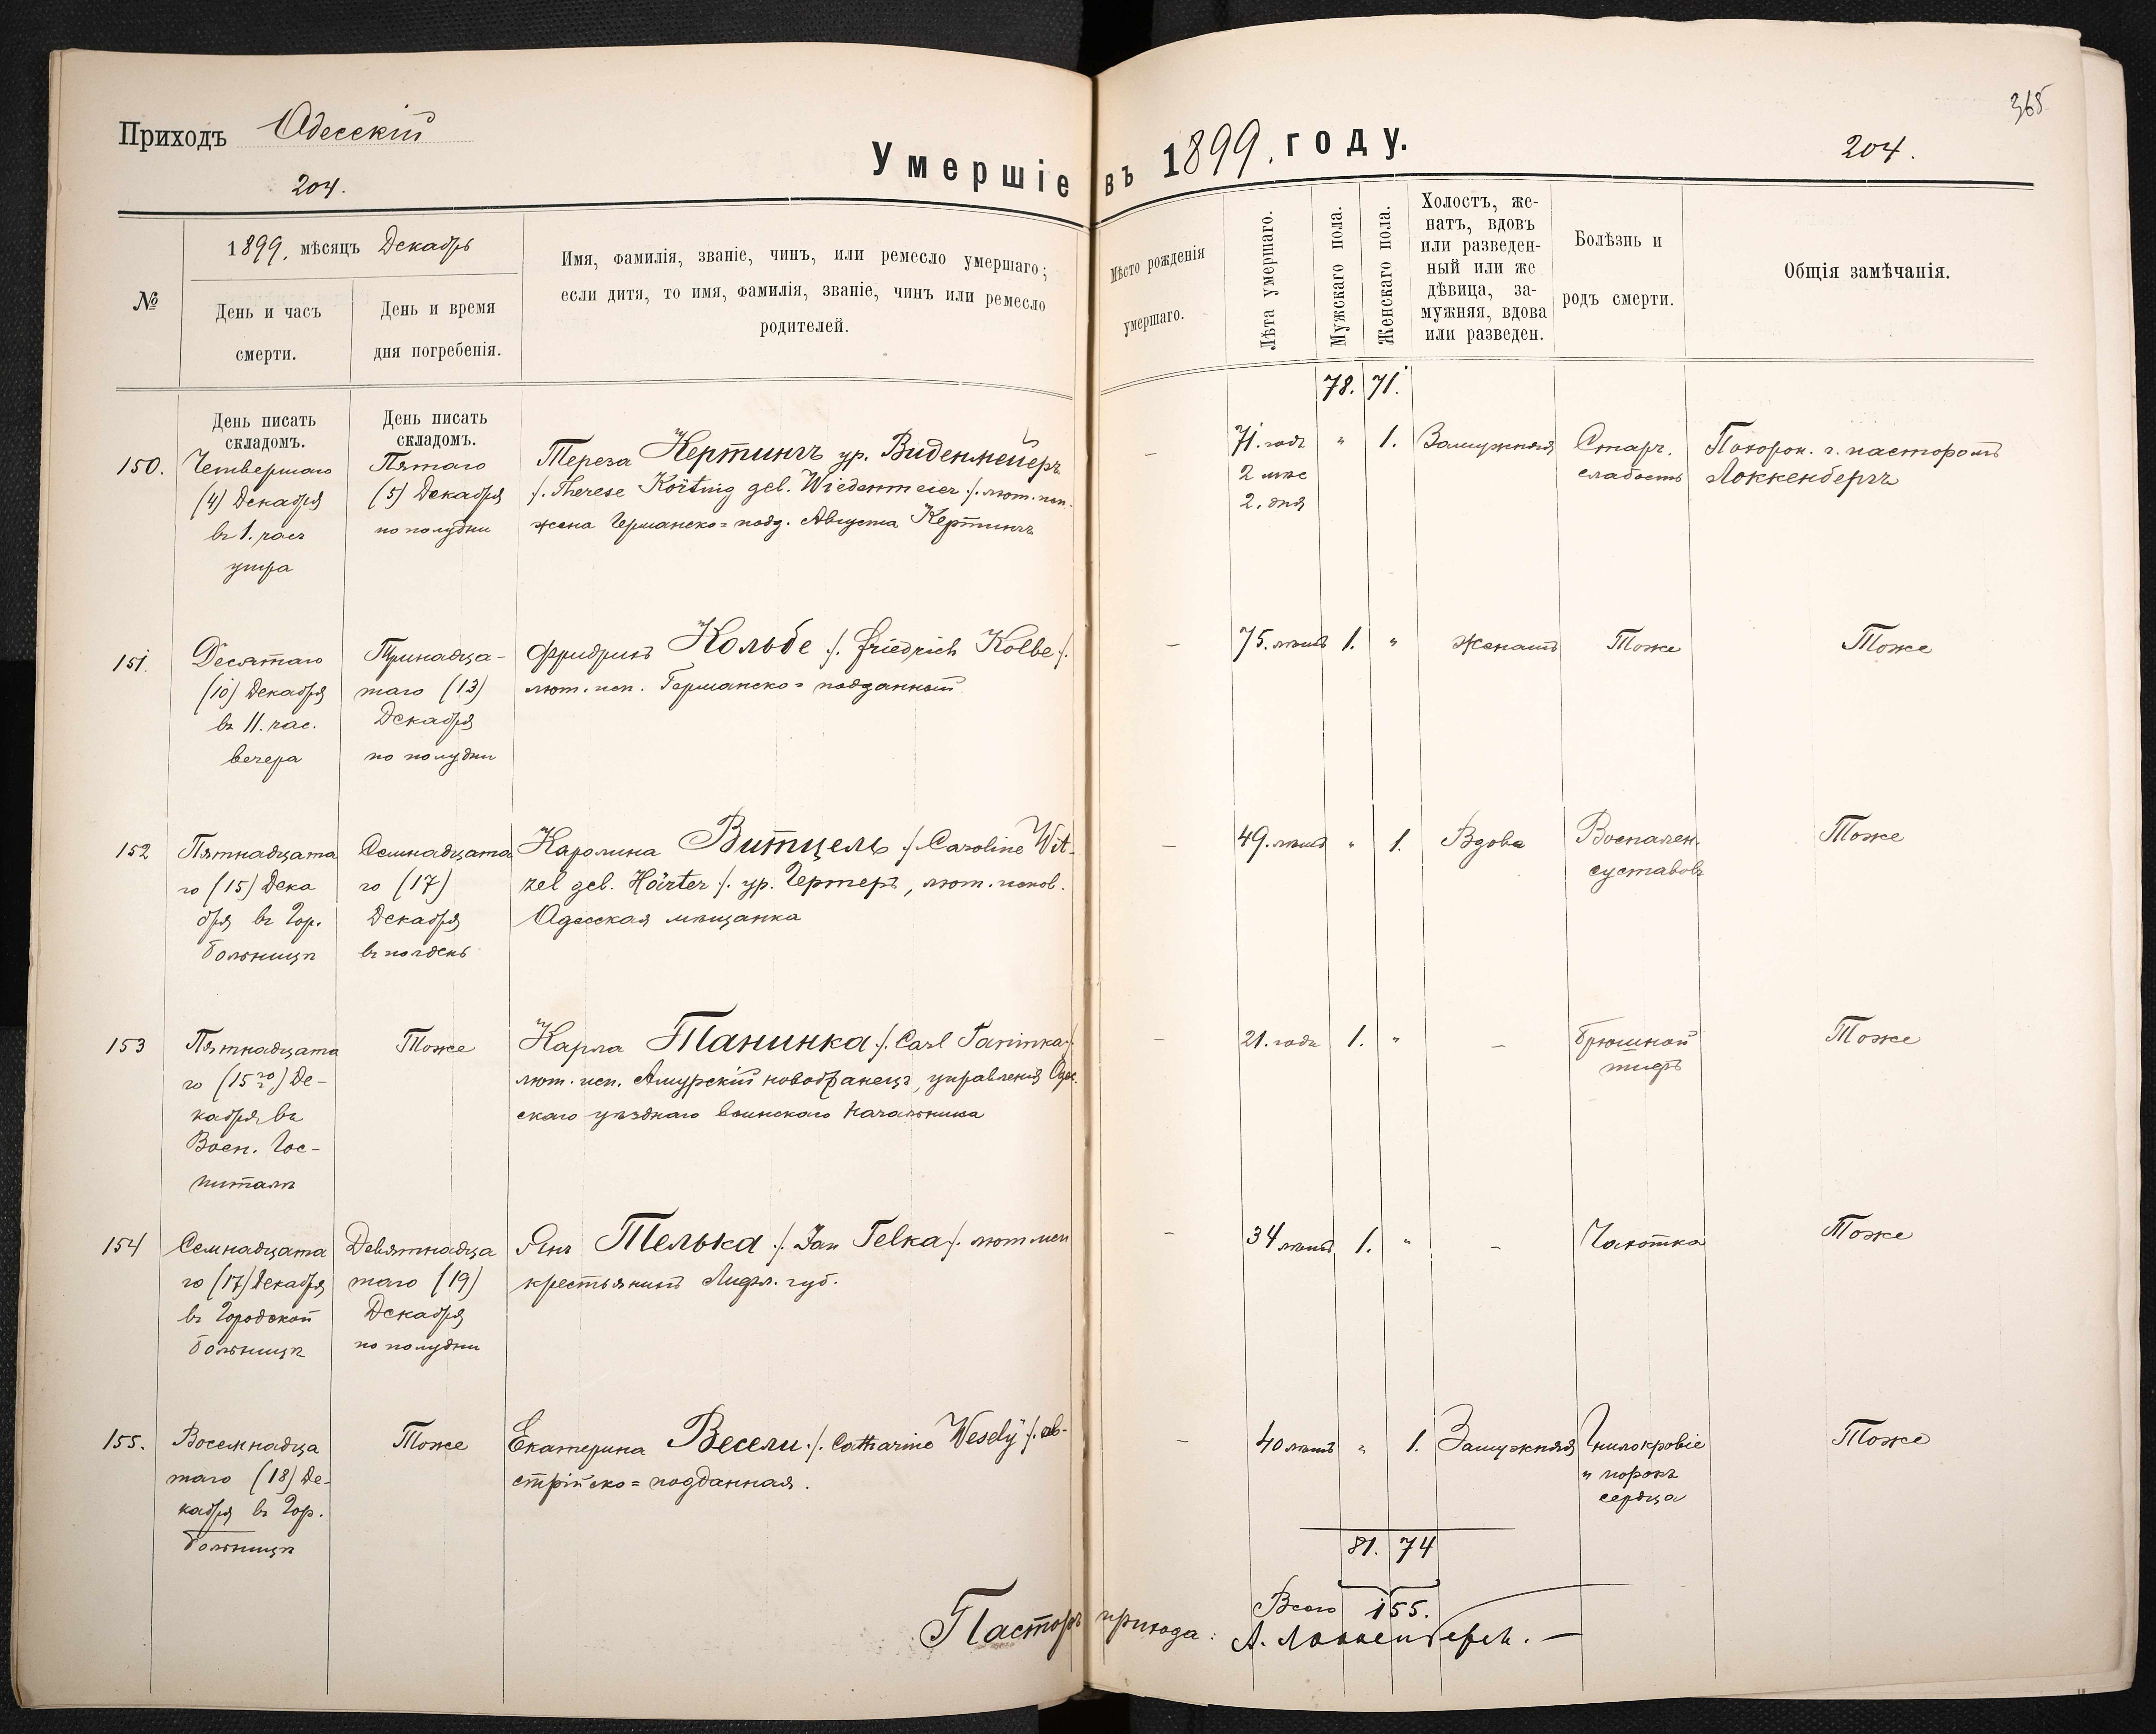 Приходъ Одесскій
204.
Умершіе въ 1899. году.
204.
365
№
1899, мѣсяцъ Декабрь
День и часъ
смерти.
День и время
дня погребенія.
Имя, фамилія, званіе, чинъ, или ремесло умершаго;
если дитя, то имя, фамилія, званіе, чинъ или ремесло
родителей.
Мѣсто рожденія
умершаго.
Лѣта умершаго.
Мужскаго пола.
Женскаго пола.
Холостъ, же-
натъ, вдовъ
или разведен-
ный или же
дѣвица, за-
мужняя, вдова
или разведен.
Болѣзнь и
родъ смерти.
Общія замѣчанія.
78. 71.
День писать
складомъ.
День писать
складомъ.
150.
Четвертаго
(4) Декабря
въ 1. часъ
утра
Пятаго
(5) Декабря
по полудни
Тереза Кертингъ ур. Виденмейеръ
/. Therese Körting geb. Wiedenmeier /. лют. исп.
жена Германско= подд. Августа Кертингъ
—
71. годъ
2 мѣс
2. дня
" 1.
Замужняя
Старч.
слабость
Похорон. г. пасторомъ
Локкенбергъ
151.
Десятаго
(10) Декабря
въ 11. час.
вечера
Тринадца-
таго (13)
Декабря
по полудни
Фридрихъ Кольбе /. Friedrich Kolbe /.
лют. исп. Германско= подданный
—
75. лѣтъ
1. "
Женатъ
Тоже
Тоже
152
Пятнадцата
го (15) Дека
бря въ Гор.
больницѣ
Семнадцата
го (17)
Декабря
въ полдень
Каролина Витцель /. Caroline Wit-
zel geb. Härter /. ур. Гертеръ, лют. испов.
Одесская мѣщанка
—
49. лѣтъ
" 1.
Вдова
Воспален.
суставовъ
Тоже
153
Пятнадцата
го (15го) Де-
кабря въ
Воен. Гос-
питалѣ
Тоже
Карла Танинка /. Carl Taninka /.
лют. исп. Амурскій новобранецъ, управленія Одес.
скаго уѣзднаго воинскаго Начальника
—
21. года
1. "
—
Брюшной
тифъ
Тоже
154
Семнадцата
го (17) Декабря
въ Городской
больницѣ
Девятнадца
таго (19)
Декабря
по полудни
Янъ Телька /. Jan Telka /. лют исп
крестьянинъ Лифл. губ.
—
34 лѣтъ
1. "
—
Чахотка
Тоже
155.
Восемнадца
таго (18) Де-
кабря въ Гор.
больницѣ
Тоже
Екатерина Весели /. Catharine Wesely /. ав-
стрійско= подданная.
—
40 лѣтъ
" 1.
Замужняя
Гнилокровіе
и порокъ
сердца
Тоже
81. 74
Всего 155.
Пасторъ прихода: А. Локкенбергъ. —